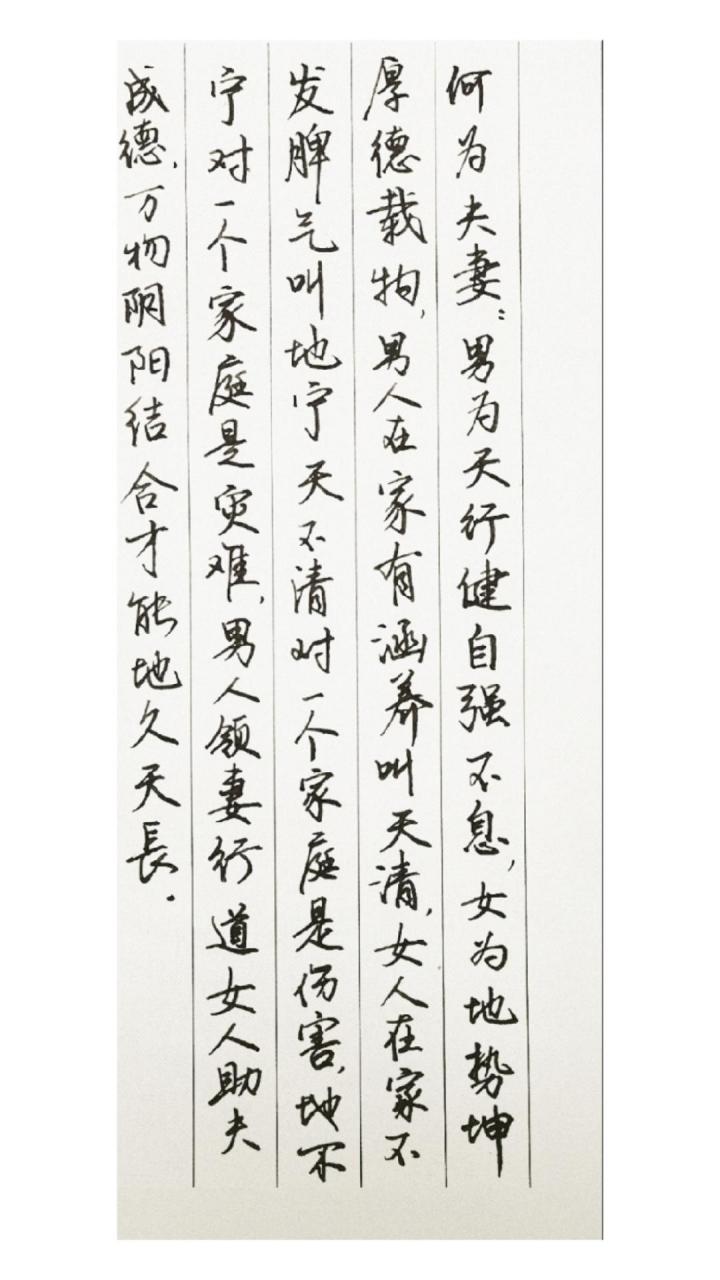 何为夫妻:男为天行健自强不息,女为地势坤
厚德载物,男人在家有涵养叫天清,女人在家不
发脾气叫地宁天不清对一个家庭是伤害,地不
宁对一个家庭是灾难,男人领妻行道女人助夫
成德,万物阴阳结合才能地久天長.